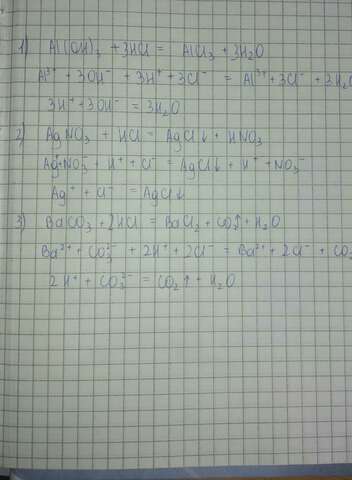 1) Al(OH)₃ + 3HCl = AlCl₃ + 3H₂O
Al³⁺ + 3OH⁻ + 3H⁺ + 3Cl⁻ = Al³⁺ + 3Cl⁻ + 3H₂O
3H⁺ + 3OH⁻ = 3H₂O
2) AgNO₃ + HCl = AgCl↓ + HNO₃
Ag⁺ + NO₃⁻ + H⁺ + Cl⁻ = AgCl↓ + H⁺ + NO₃⁻
Ag⁺ + Cl⁻ = AgCl↓
3) BaCO₃ + 2HCl = BaCl₂ + CO₂↑ + H₂O
Ba²⁺ + CO₃²⁻ + 2H⁺ + 2Cl⁻ = Ba²⁺ + 2Cl⁻ + CO₂
2H⁺ + CO₃²⁻ = CO₂↑ + H₂O